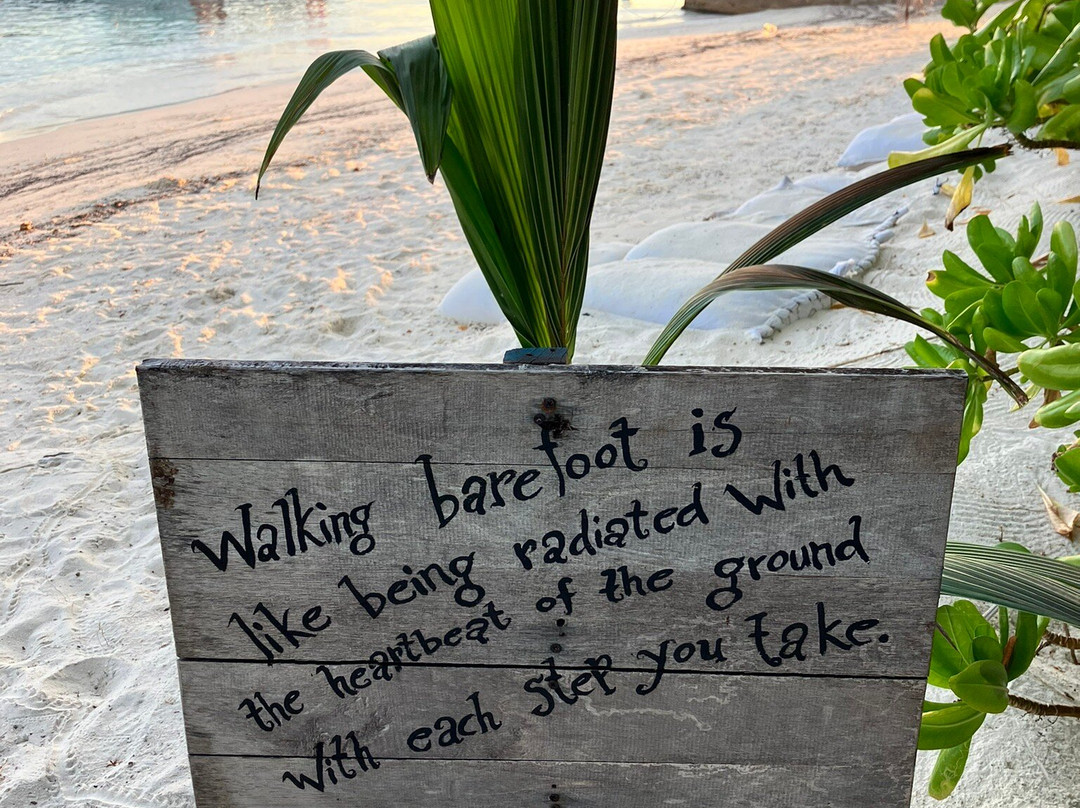 Walking barefoot is
like being radiated with
the heartbeat of the ground
with each step you take.